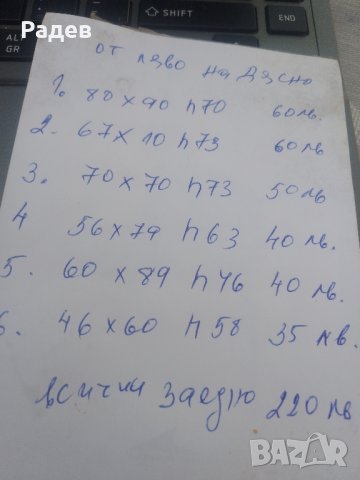 Радев
ALT GR
SHIFT
от ляво на дясно
1. 80 x 90 h70 60лв.
2. 67 x 10 h73 60лв
3. 70 x 70 h73 50лв
4 56 x 79 h63 40 лв.
5. 60 x 89 h46 40 лв.
6. 46 x 60 h58 35 лв.
всички заедно 220 лв
BAZAR